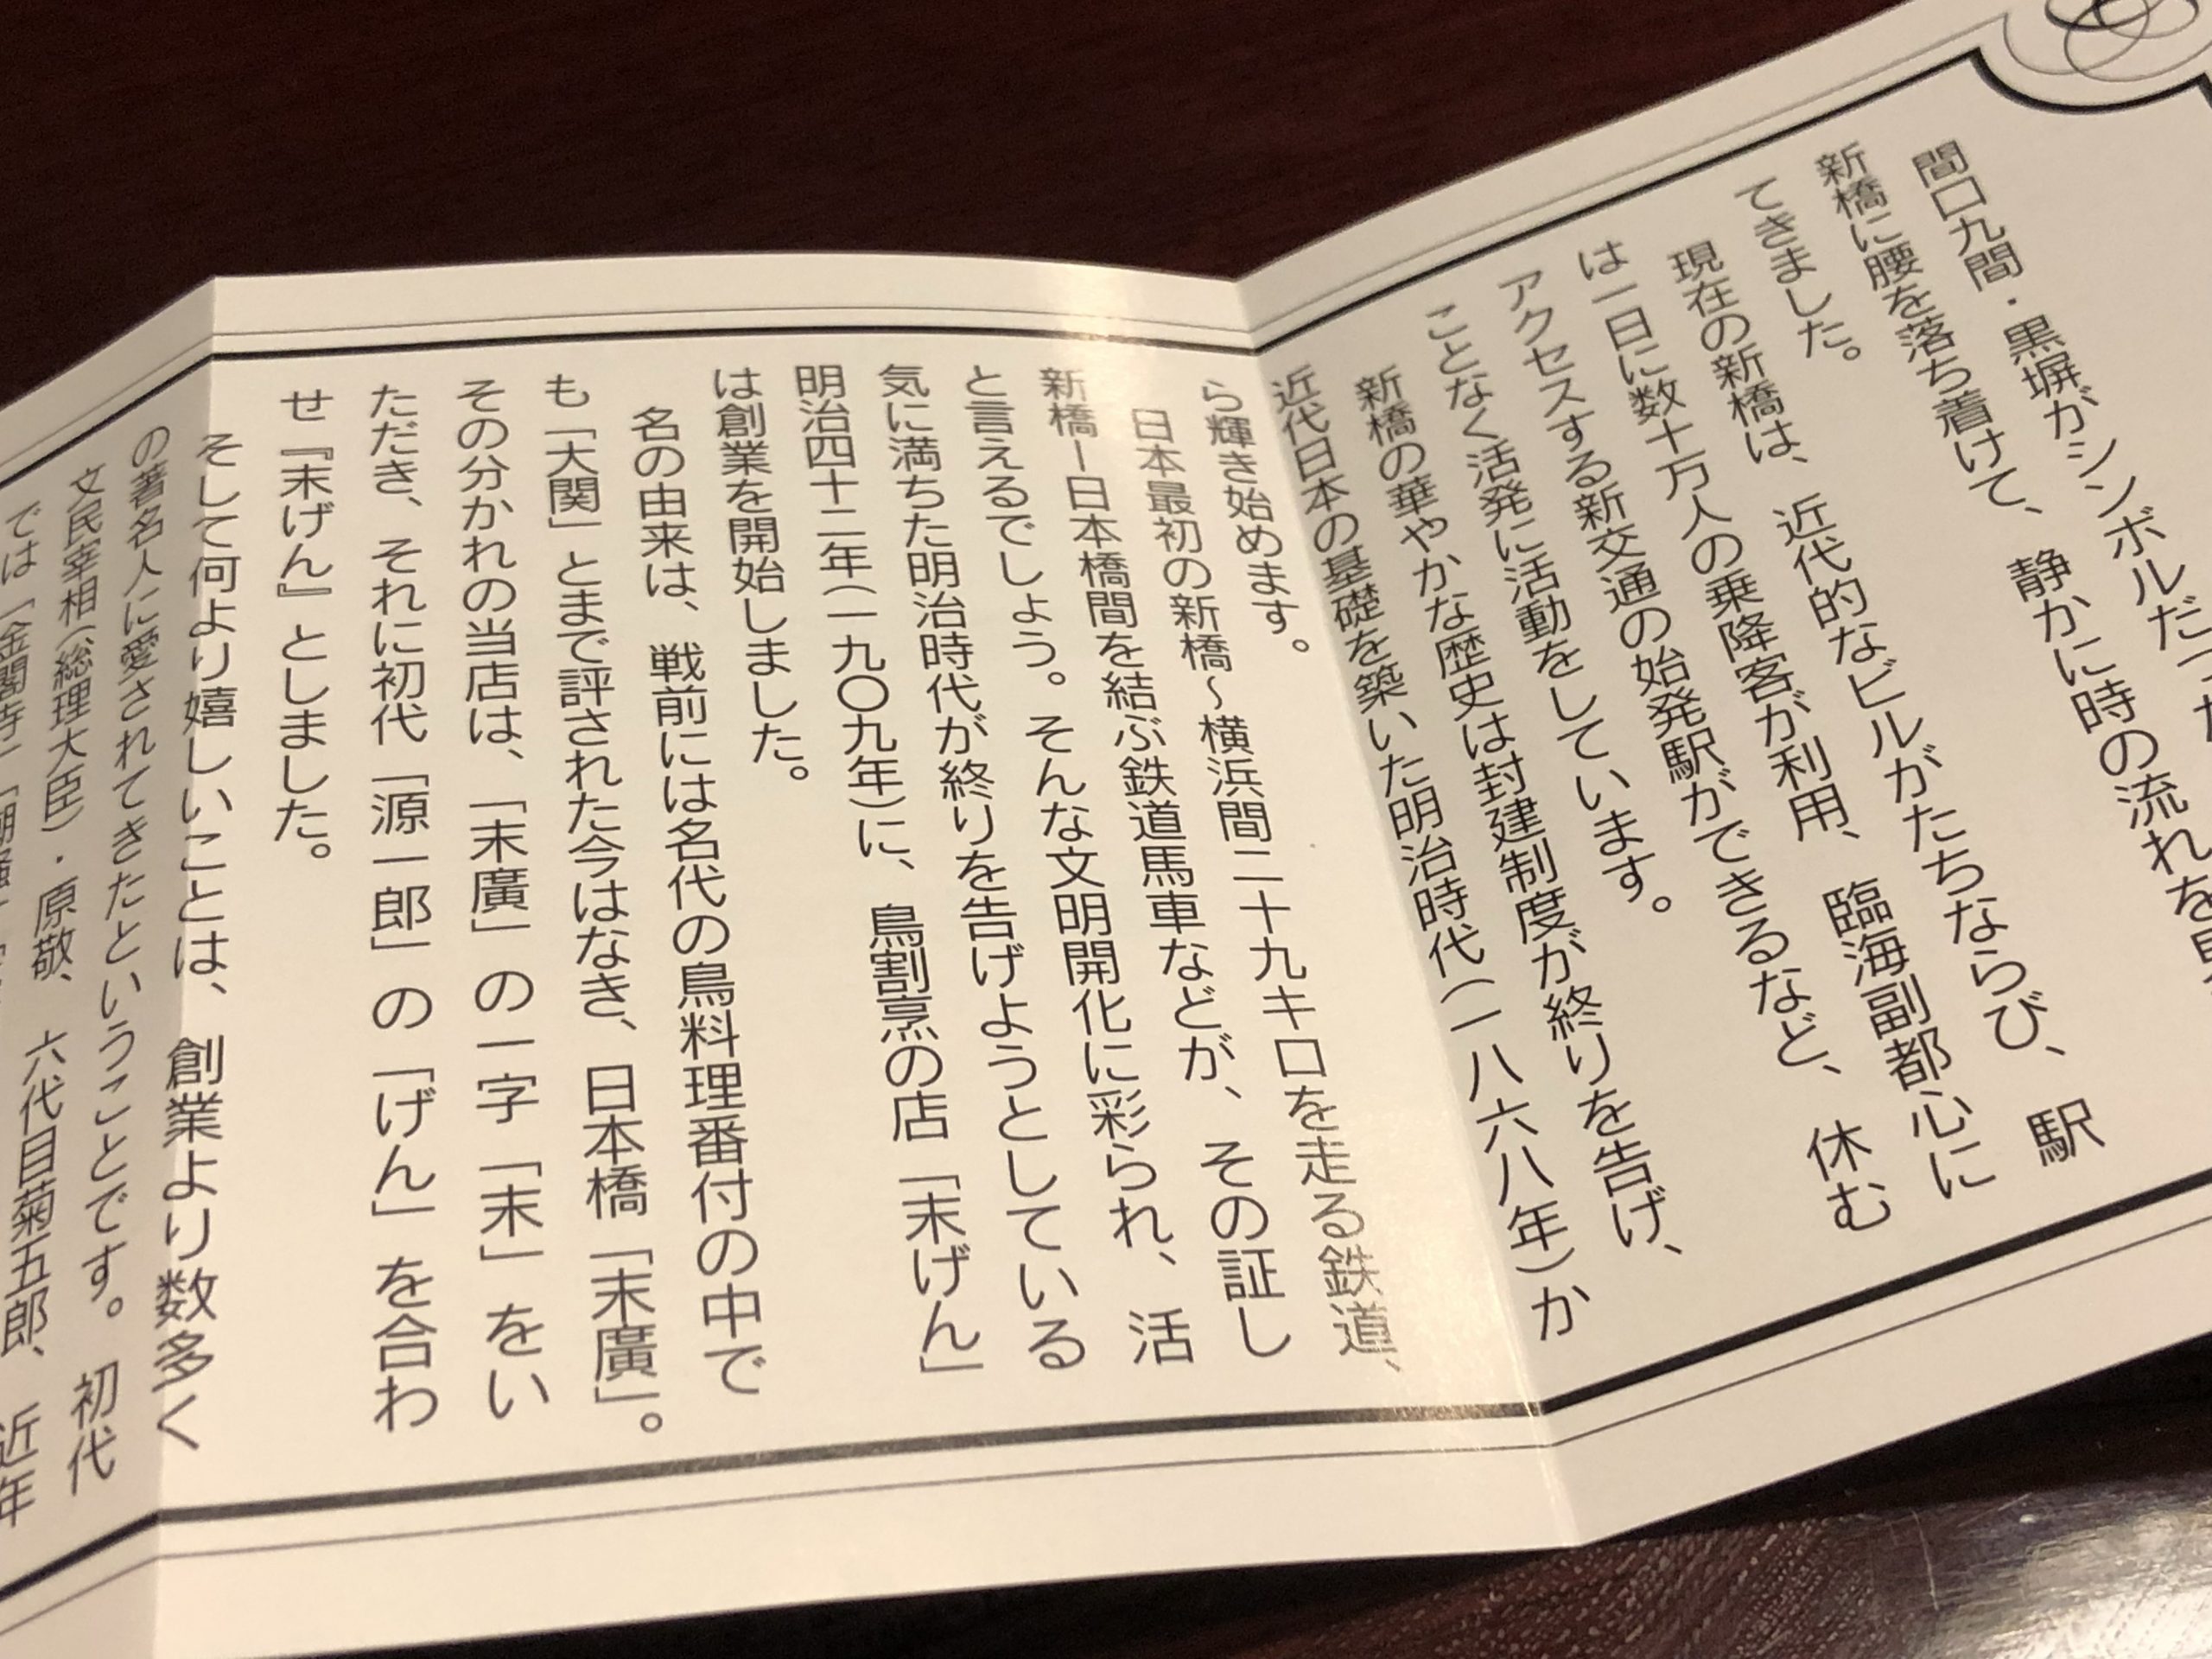 間口九間・黒塀がシンボルだった
新橋に腰を落ち着けて、静かに時の流れを見
てきました。
現在の新橋は、近代的なビルがたちならび、駅
は一日に数十万人の乗降客が利用、臨海副都心に
アクセスする新交通の始発駅ができるなど、休む
ことなく活発に活動をしています。
新橋の華やかな歴史は封建制度が終りを告げ、
近代日本の基礎を築いた明治時代(一八六八年)か
ら輝き始めます。
日本最初の新橋〜横浜間二十九キロを走る鉄道、
新橋ー日本橋間を結ぶ鉄道馬車などが、その証し
と言えるでしょう。そんな文明開化に彩られ、活
気に満ちた明治時代が終りを告げようとしている
明治四十二年(一九〇九年)に、鳥割烹の店「末げん」
は創業を開始しました。
名の由来は、戦前には名代の鳥料理番付の中で
も「大関」とまで評された今はなき、日本橋「末廣」。
その分かれの当店は、「末廣」の一字「末」をい
ただき、それに初代「源一郎」の「げん」を合わ
せ『末げん』としました。
そして何より嬉しいことは、創業より数多く
の著名人に愛されてきたということです。初代
文民宰相(総理大臣)・原敬、六代目菊五郎、近年
では「金閣寺」「潮騒」